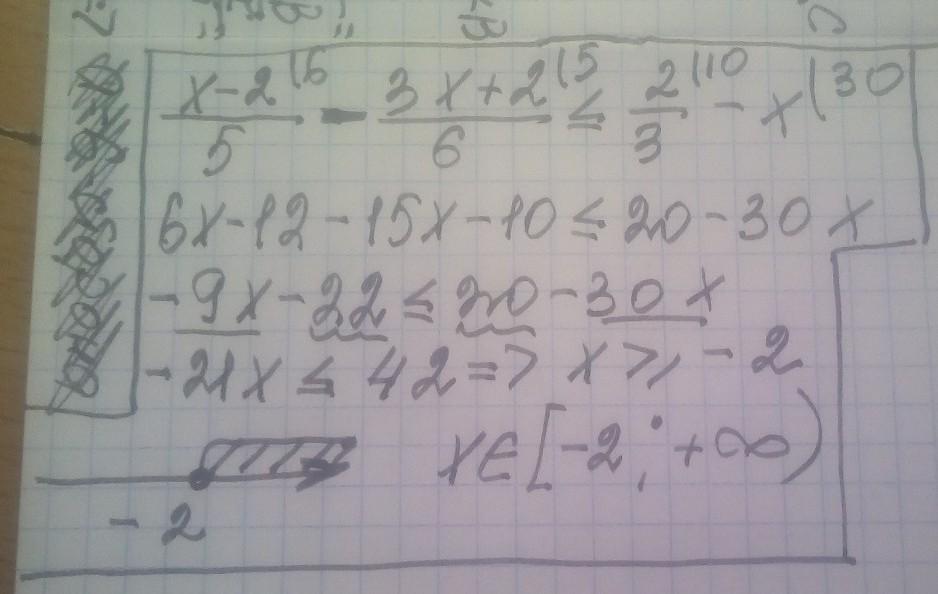 x-2⁽⁶/5 - 3x+2⁽⁵/6 ≤ 2⁽¹⁰/3 - x⁽³⁰
6x-12-15x-10≤20-30x
-9x-22≤20-30x
-21x≤42=> x⩾-2
x∈[-2;+∞)
-2